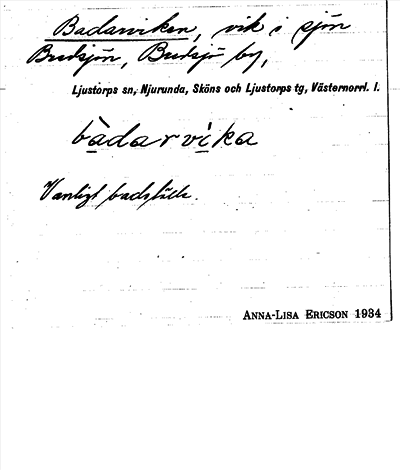 Badarviken, vik i sjön
Bredsjön, Bredsjö by,
Ljustorps sn, Njurunda, Sköns och Ljustorps tg, Västernorrl. l.
bàdarvi̱ka
Vanligt badställe.
ANNA-LISA ERICSON 1934